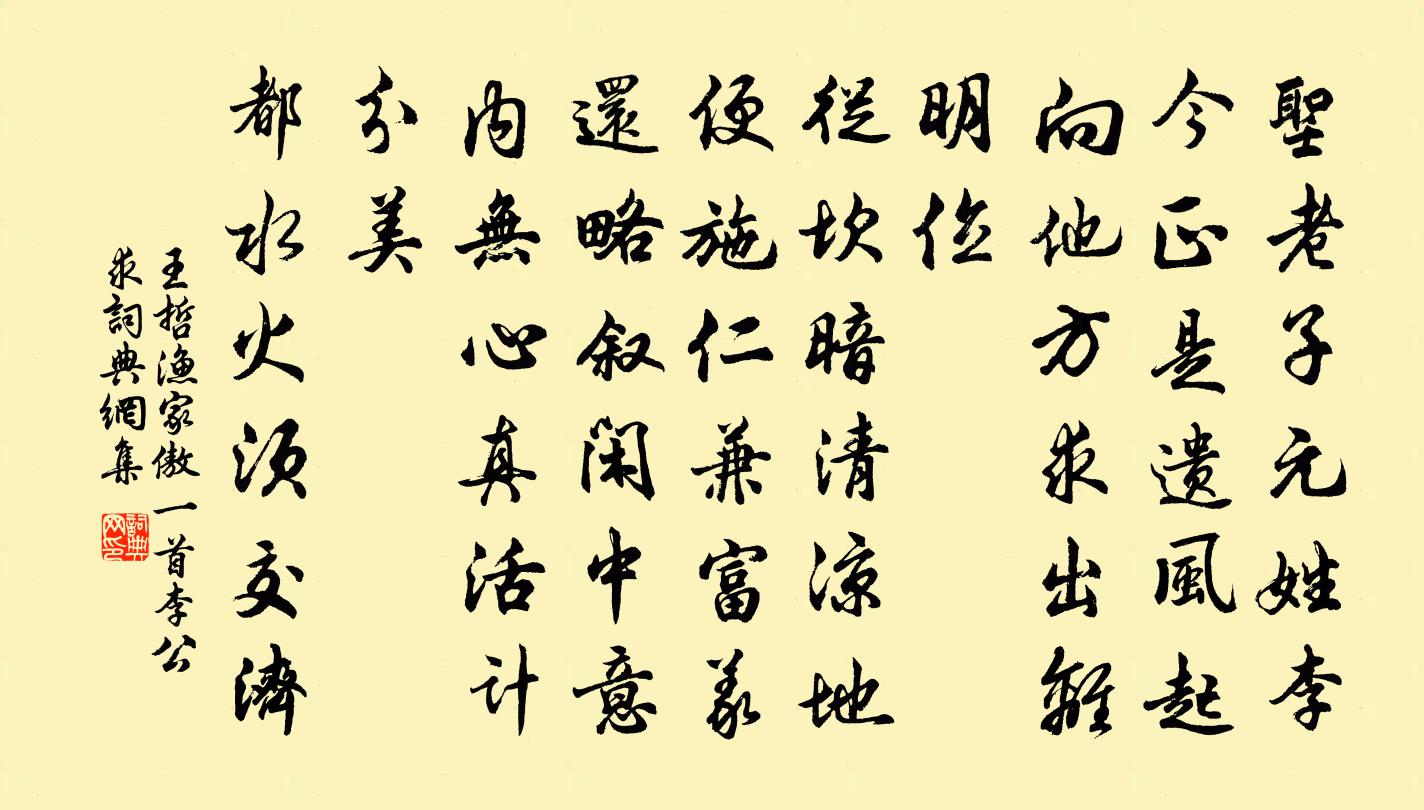 聖老子元姓李
今正是遗風起
向他方求出離
明位
從坎暗清涼地
便施仁兼富義
還略叙閑中意
内無心真活計
分美
都水火须交濟
王哲漁家傲 一首李公
求詞典網集
詞典网印